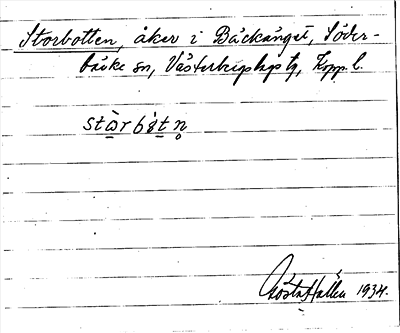 Storbotten, åker i Bäckänget, Söder-
bärke sn, Västerbergslags tg, Kopp. l.
stɷ̀rbɷ̀tn̥
Gösta Hallén 1934.